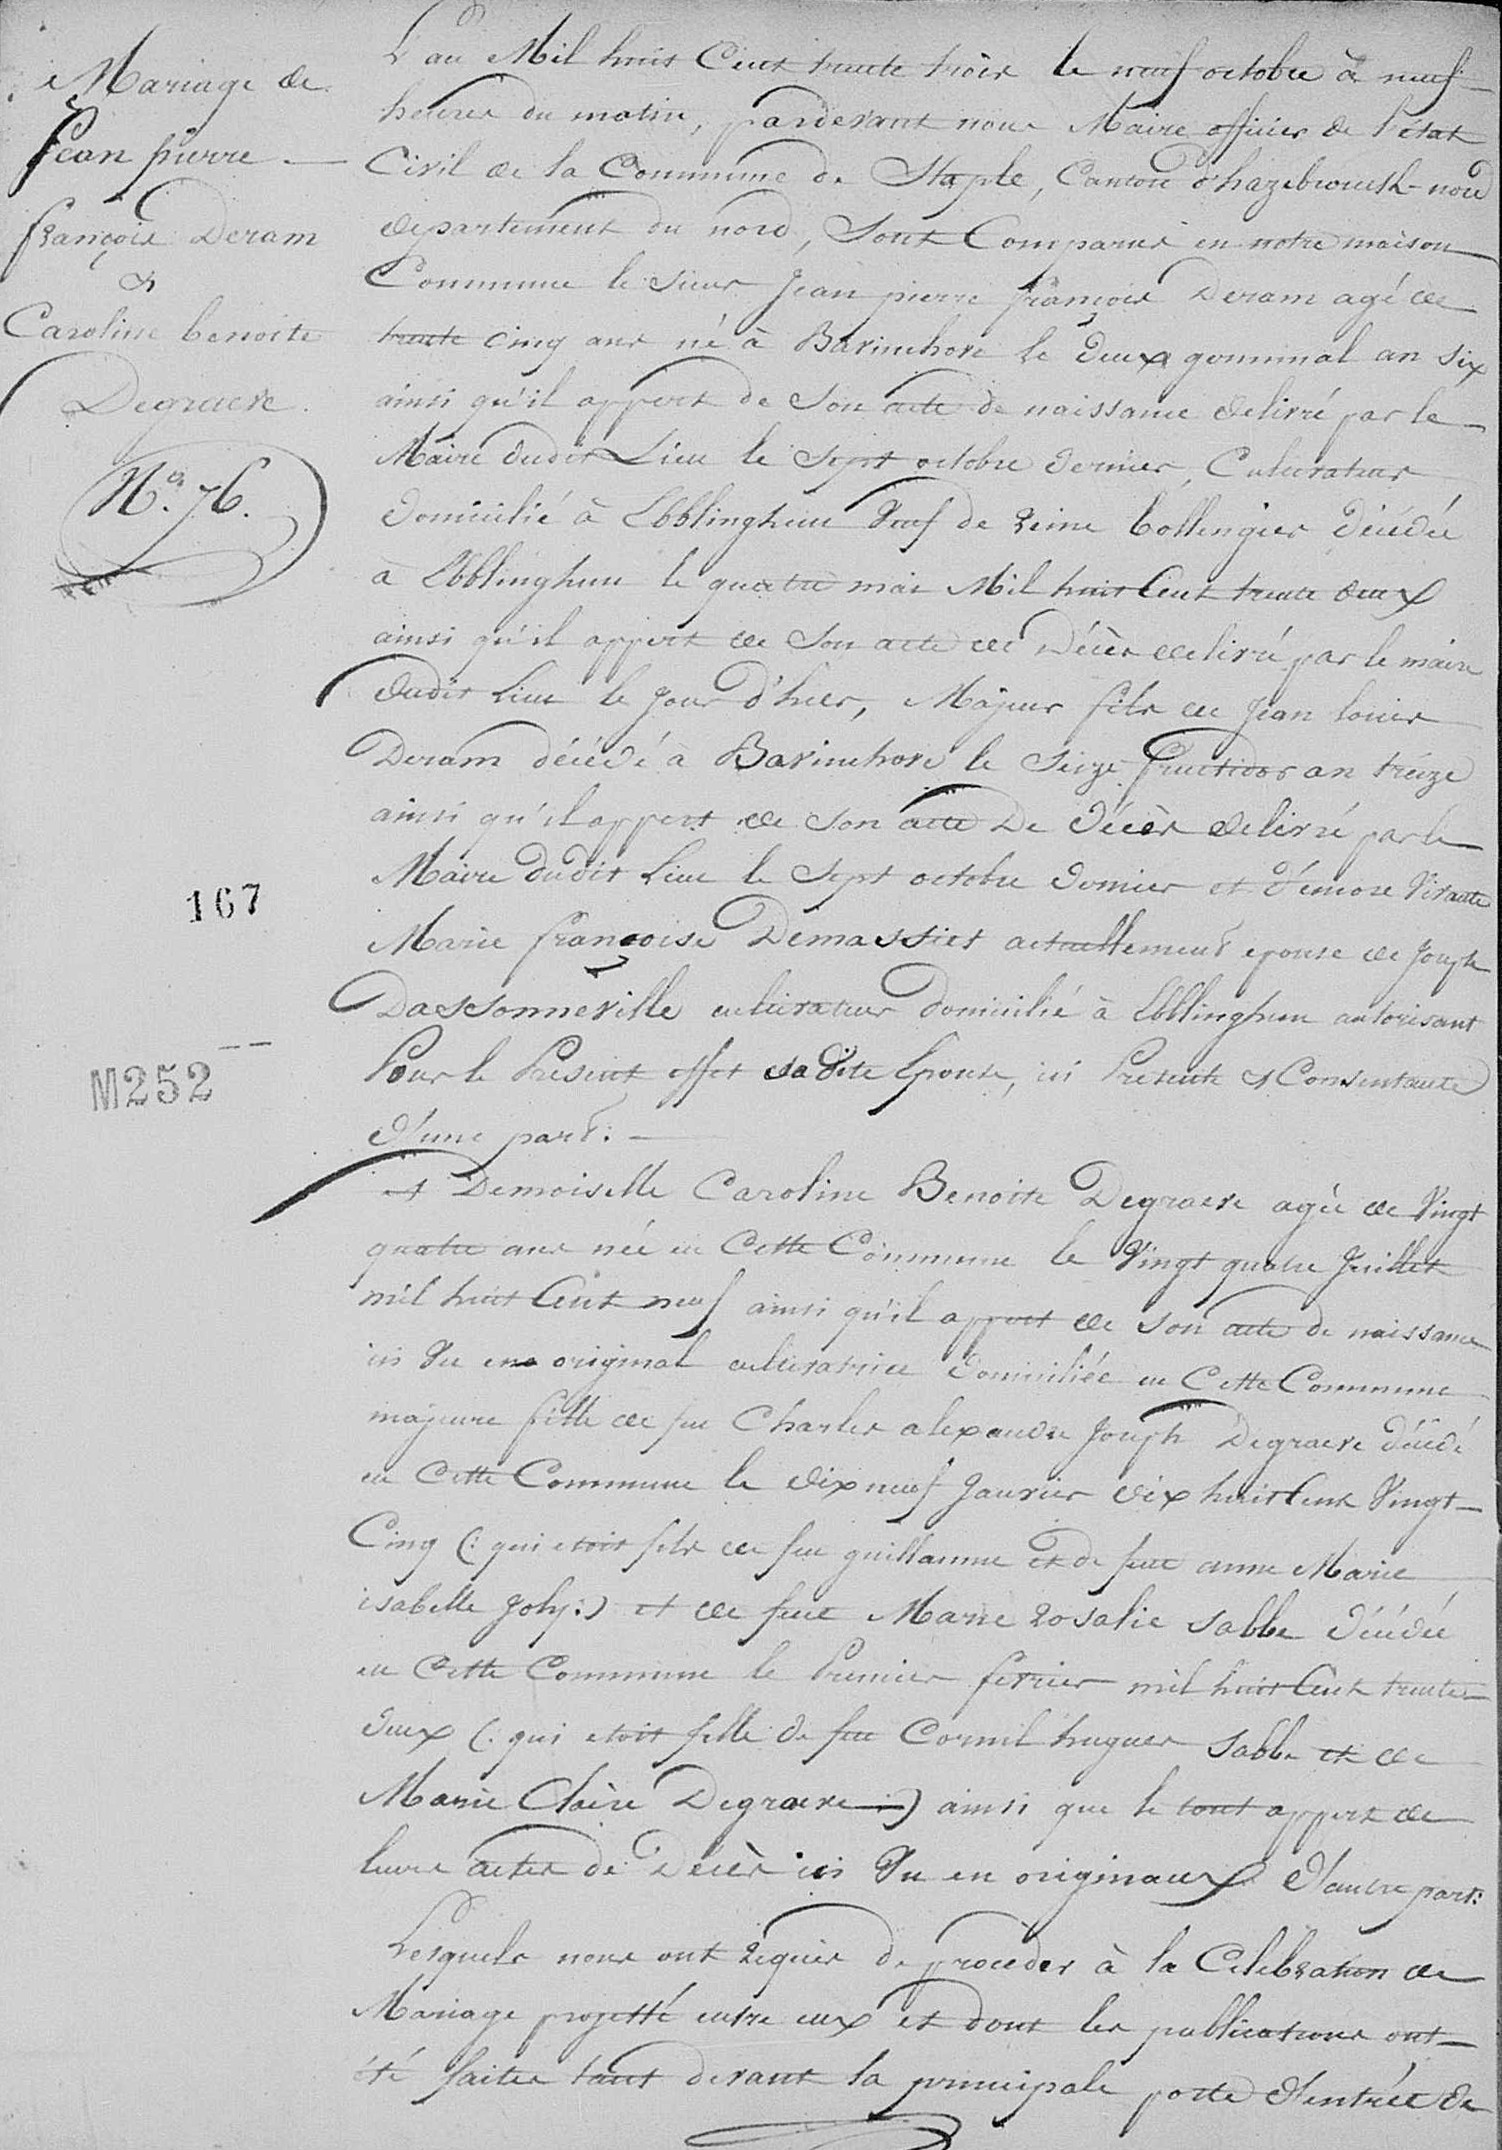 Mariage de
Jean pierre
françois Deram
&
Caroline benoite
Degraeve.
No. 76.
167
M252
L'an Mil huit Cent trente trois le neuf octobre à neuf
heures du matin, pardevant nous Maire officier de l'état
Civil de la Commune de Staple, Canton d'hazebrouck-nord
departement du nord, Sont Comparus en notre maison
Commune le sieur Jean pierre françois Deram agé de
trente cinq ans né à Bavinchove le deux germinal an six
ainsi qu'il appert de Son acte de naissance delivré par le
Maire dudit Lieu le Sept octobre dernier, Cultivateur
domicilié à Ebblinghem Veuf de reine bollengier décédée
à Ebblinghem le quatre mai Mil huit Cent trente deux
ainsi qu'il appert de Son acte de Décès delivré par le maire
dudit Lieu le Jour d'hier, Majeur fils de Jean louis
Deram décédé à Bavinchove le Seize fructidor an treize
ainsi qu'il appert de Son acte De décès delivré par le
Maire dudit Lieu le Sept octobre dernier et d'encore Vivante
Marie françoise Demassiet actuellement epouse de Joseph
Dassonneville cultivateur domicilié à Ebblinghem autorisant
Pour le Présent effet sa dite Epouse, ici Présente & Consentante
d'une part:
& Demoiselle Caroline Benoite Degraeve agée de Vingt
quatre ans née en Cette Commune le Vingt quatre Juillet
mil huit Cent neuf ainsi qu'il appert de son acte de naissance
ici Vu en original cultivatrice domiciliée en Cette Commune
majeure fille de feu Charles alexandre Joseph Degraeve décédé
en Cette Commune le dix neuf Janvier dix huit Cent Vingt-
Cinq (: qui etoit fils de feu guillaume et de feue anne Marie
isabelle Joly:) et de feue Marie Rosalie Sabbe décédée
en Cette Commune le Premier fevrier mil huit Cent trente-
deux (: qui etoit fille de feu Cornil hugues Sabbe et de
Marie Claire Degraeve :) ainsi que le tout appert de
leurs actes de Décès ici Vu en originaux D'autre part:
Lesquels nous ont requis de proceder à la Celebration de
Mariage projetté entre eux et dont les publications ont-
été faites tant devant la principale porte d'entrée de